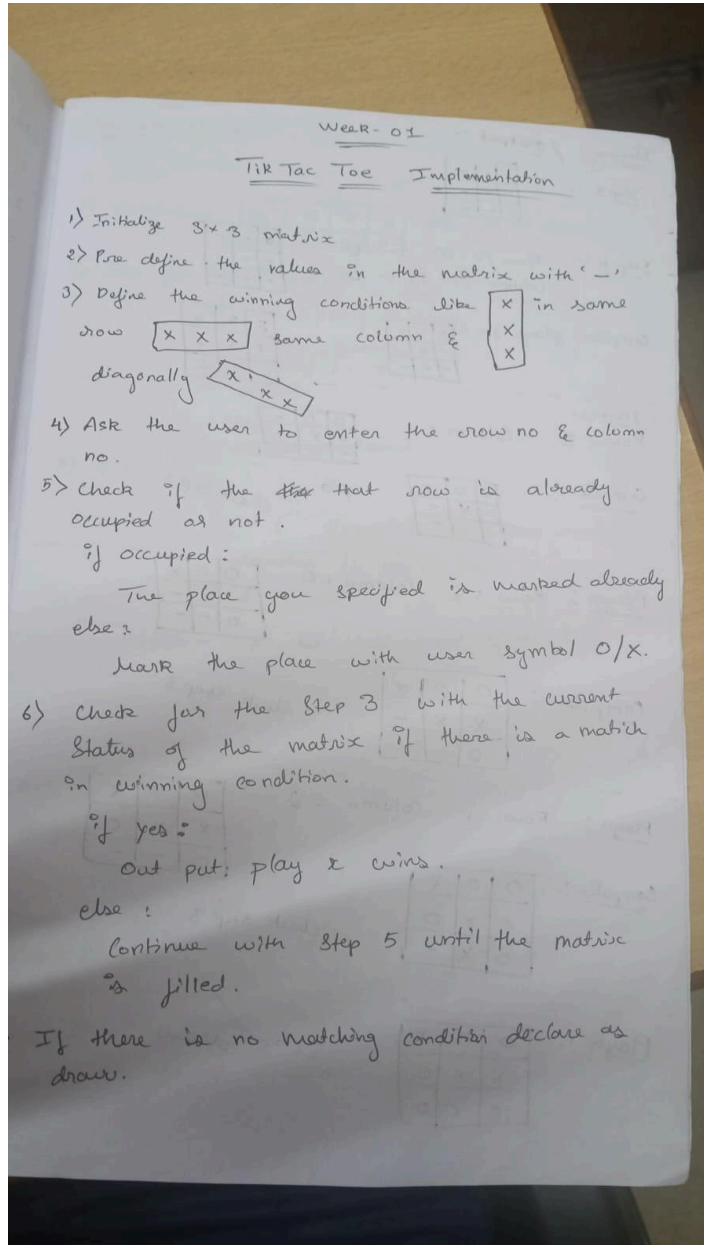 Week - 01
Tik Tac Toe Implementation
1) Initialize 3x3 matrix
2) Pre define the values in the matrix with '_'
3) Define the winning conditions like x x x in same
row x x x same column &
diagonally x x x
4) Ask the user to enter the row no & column
no.
5) Check if the that row is already
occupied or not.
if occupied :
The place you specified is marked already
else :
Mark the place with user symbol O/X.
6) Check for the Step 3 with the current
Status of the matrix if there is a match
in winning condition.
if yes :
Out put: play x wins.
else :
Continue with Step 5 until the matrix
is filled.
If there is no matching condition declare as
draw.